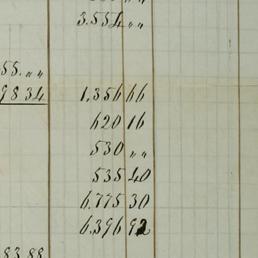 3.554 〃
55. 〃
98 34 1,356 66
620 16
530 〃
535 40
6.775 30
6.396 92
83 88